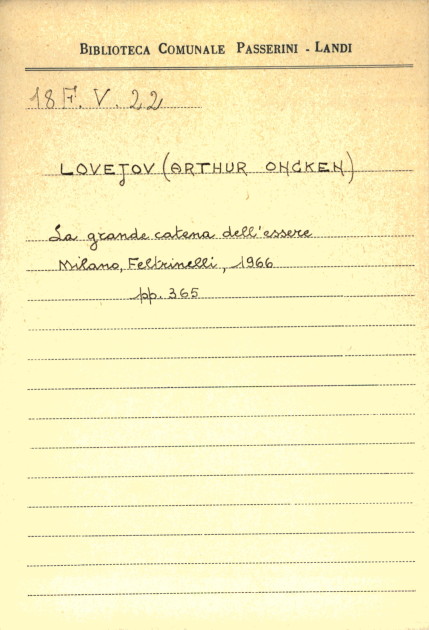 BIBLIOTECA COMUNALE PASSERINI - LANDI
18 F. V. 22
LOVEJOV (ARTHUR ONCKEN)
La grande catena dell'essere
Milano, Feltrinelli, 1966
pp. 365